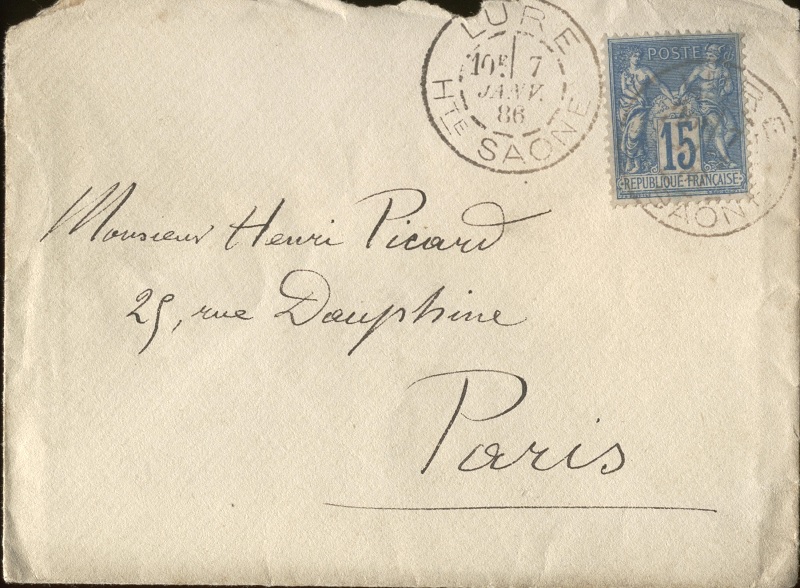 LURE
10E 7
JANV.
86
HTE SAÔNE
POSTE
15
RÉPUBLIQUE·FRANÇAISE
URE
SAÔNE
Monsieur Henri Picard
25, rue Dauphine
Paris